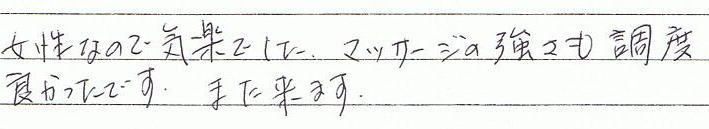 女性なので気楽でした. マッサージの強さも調度
良かったです. また来ます.